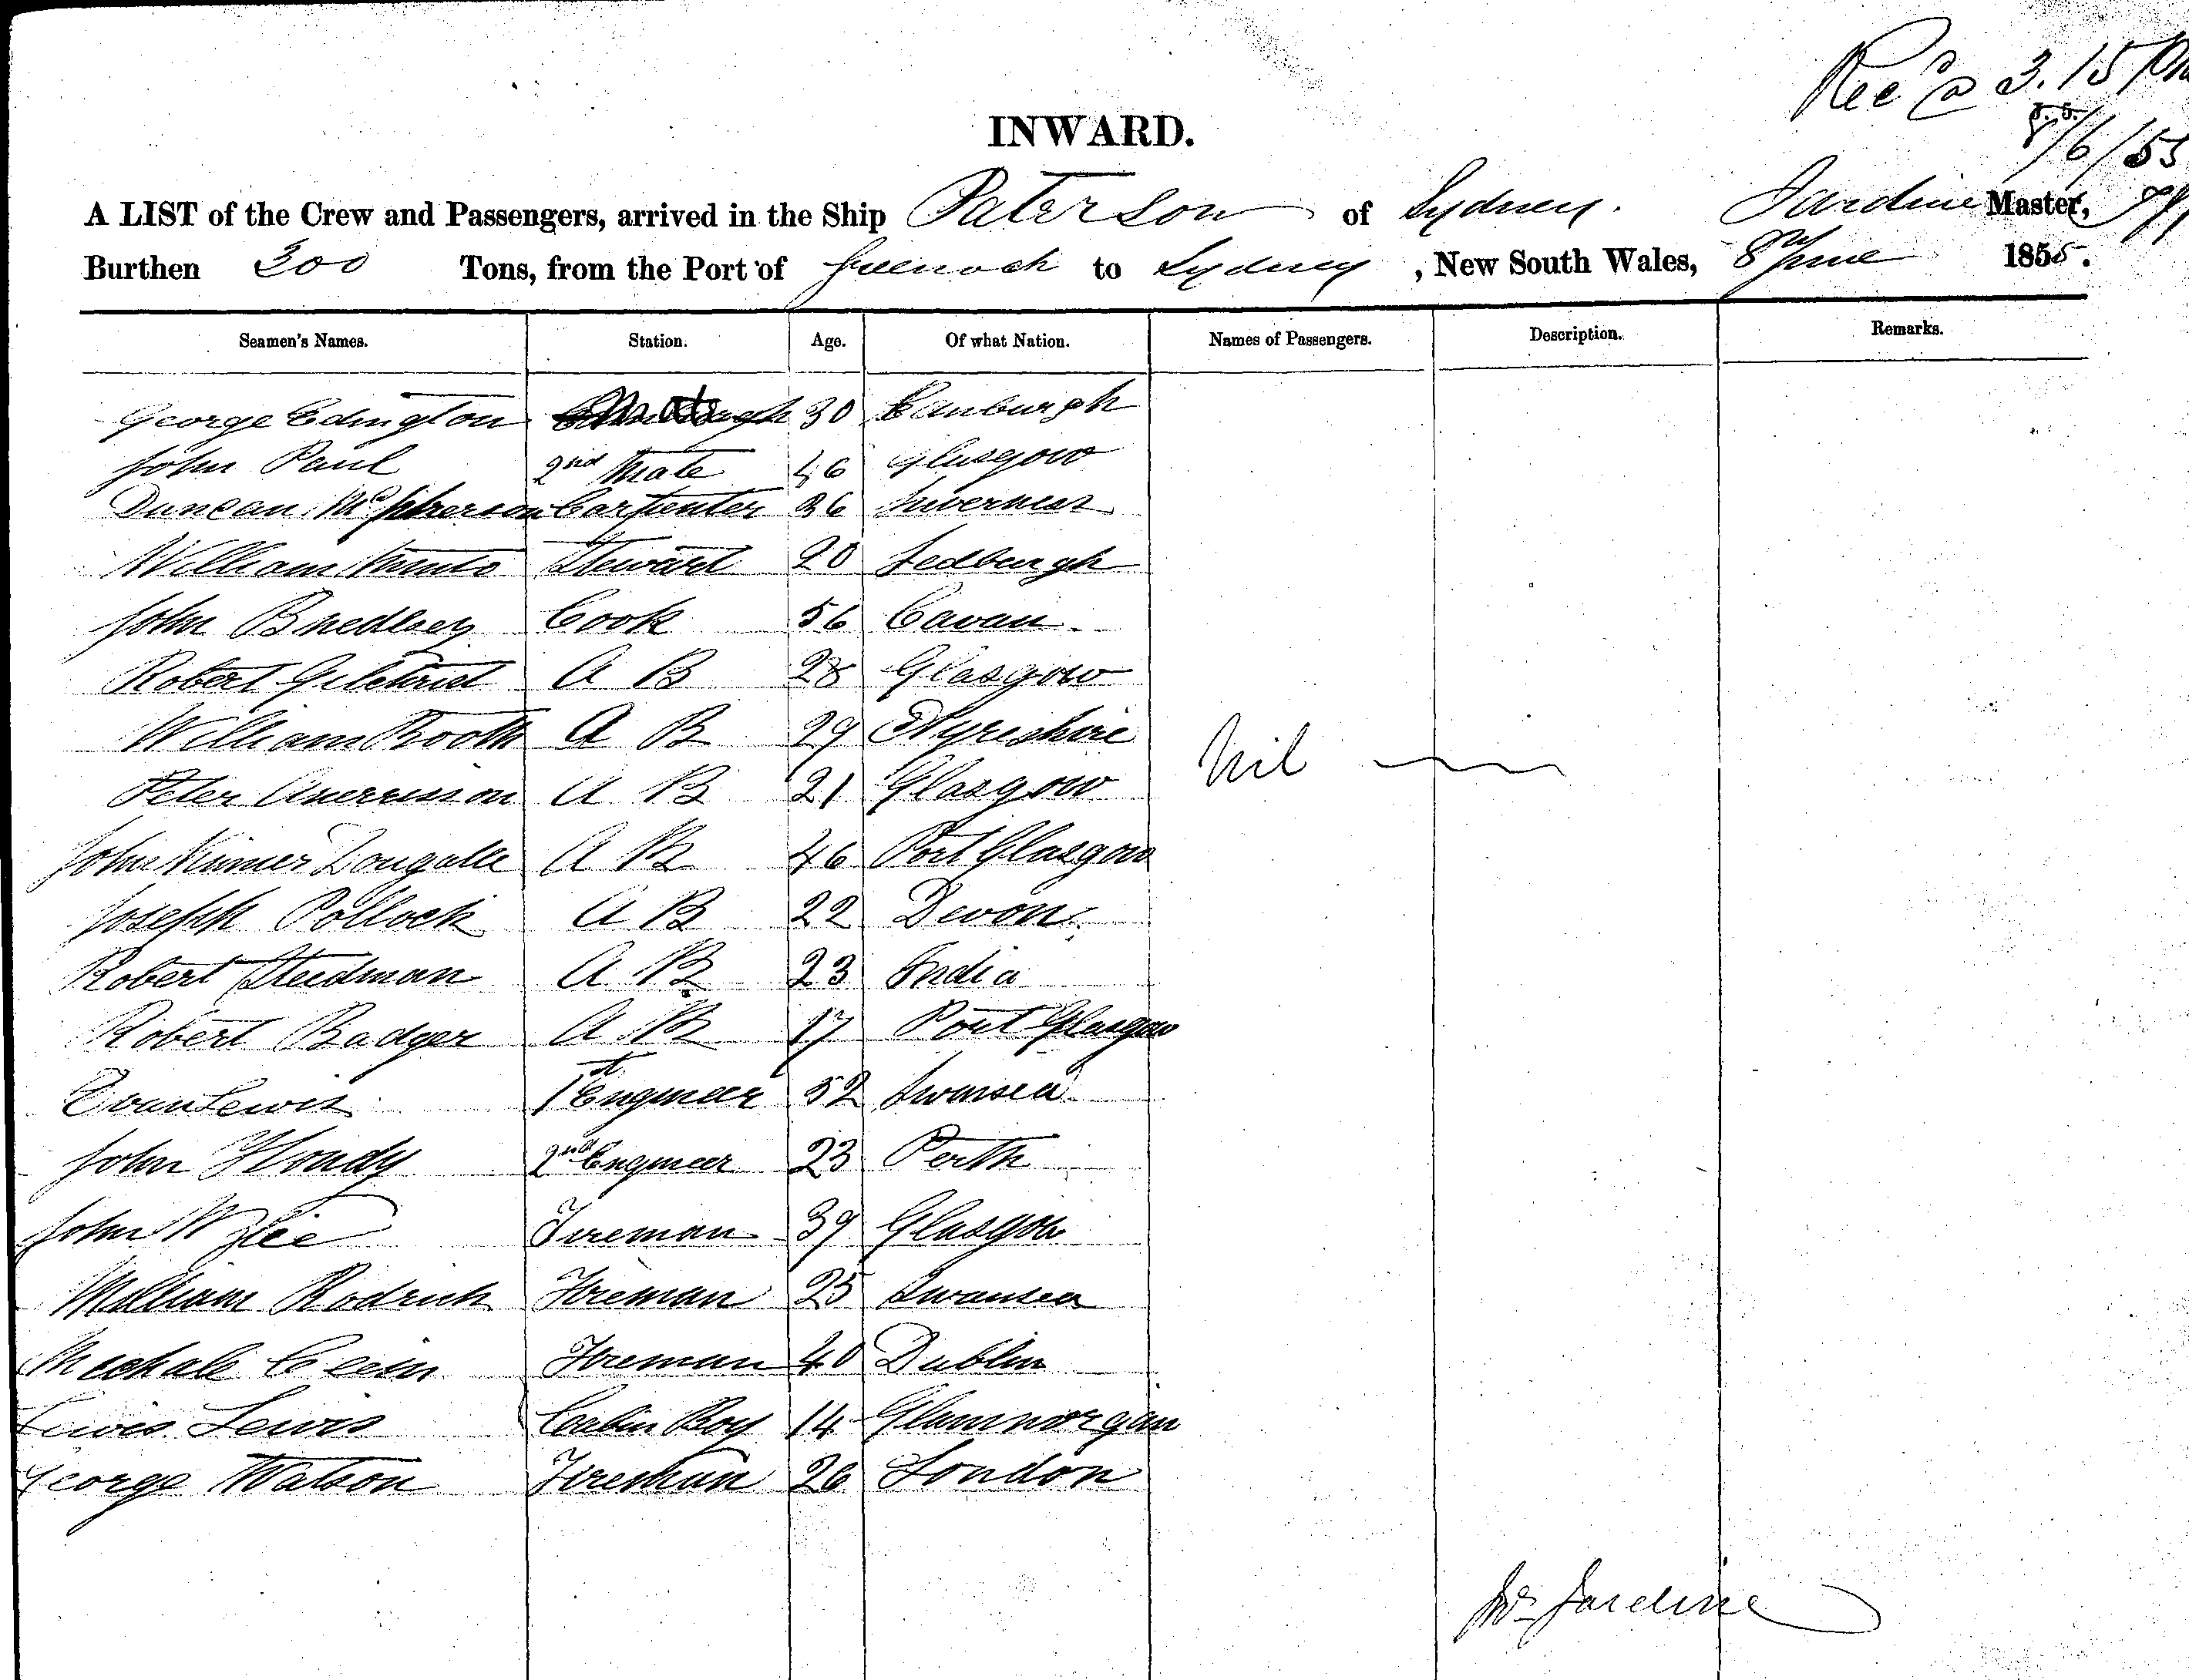 Rec'd @ 3.15 pm
8/6/55
INWARD.
A LIST of the Crew and Passengers, arrived in the Ship Paterson of Sydney. Jardine Master,
Burthen 200 Tons, from the Port of Greenock to Sydney, New South Wales, 8th June 1855.
Seamen's Names. Station. Age. Of what Nation. Names of Passengers. Description. Remarks.
George Edington Mate 30 Edinburgh
John Paul 2nd Mate 46 Glasgow
Duncan McPherson Carpenter 36 Inverness
William Steward 20 Jedburgh
John Cook 56 Cavan
Robert Gilchrist A B 28 Glasgow
William Booth A B 29 Ayreshire
Peter A B 21 Glasgow Nil
John Dougall A B 46 Port Glasgow
Joseph Pollock A B 22 Devon
Robert Steedman A B 23 India
Robert Badger A B 17 Port Glasgow
Evan Lewis 1st Engineer 52 Swansea
John 2nd Engineer 23 Perth
John Wylie Fireman 39 Glasgow
William Rodrick Fireman 25 Swansea
Michale Fireman 40 Dublin
Lewis Lewis Cabin Boy 14 Glamnorgan
George Watson Fireman 26 London
Jno Jardine